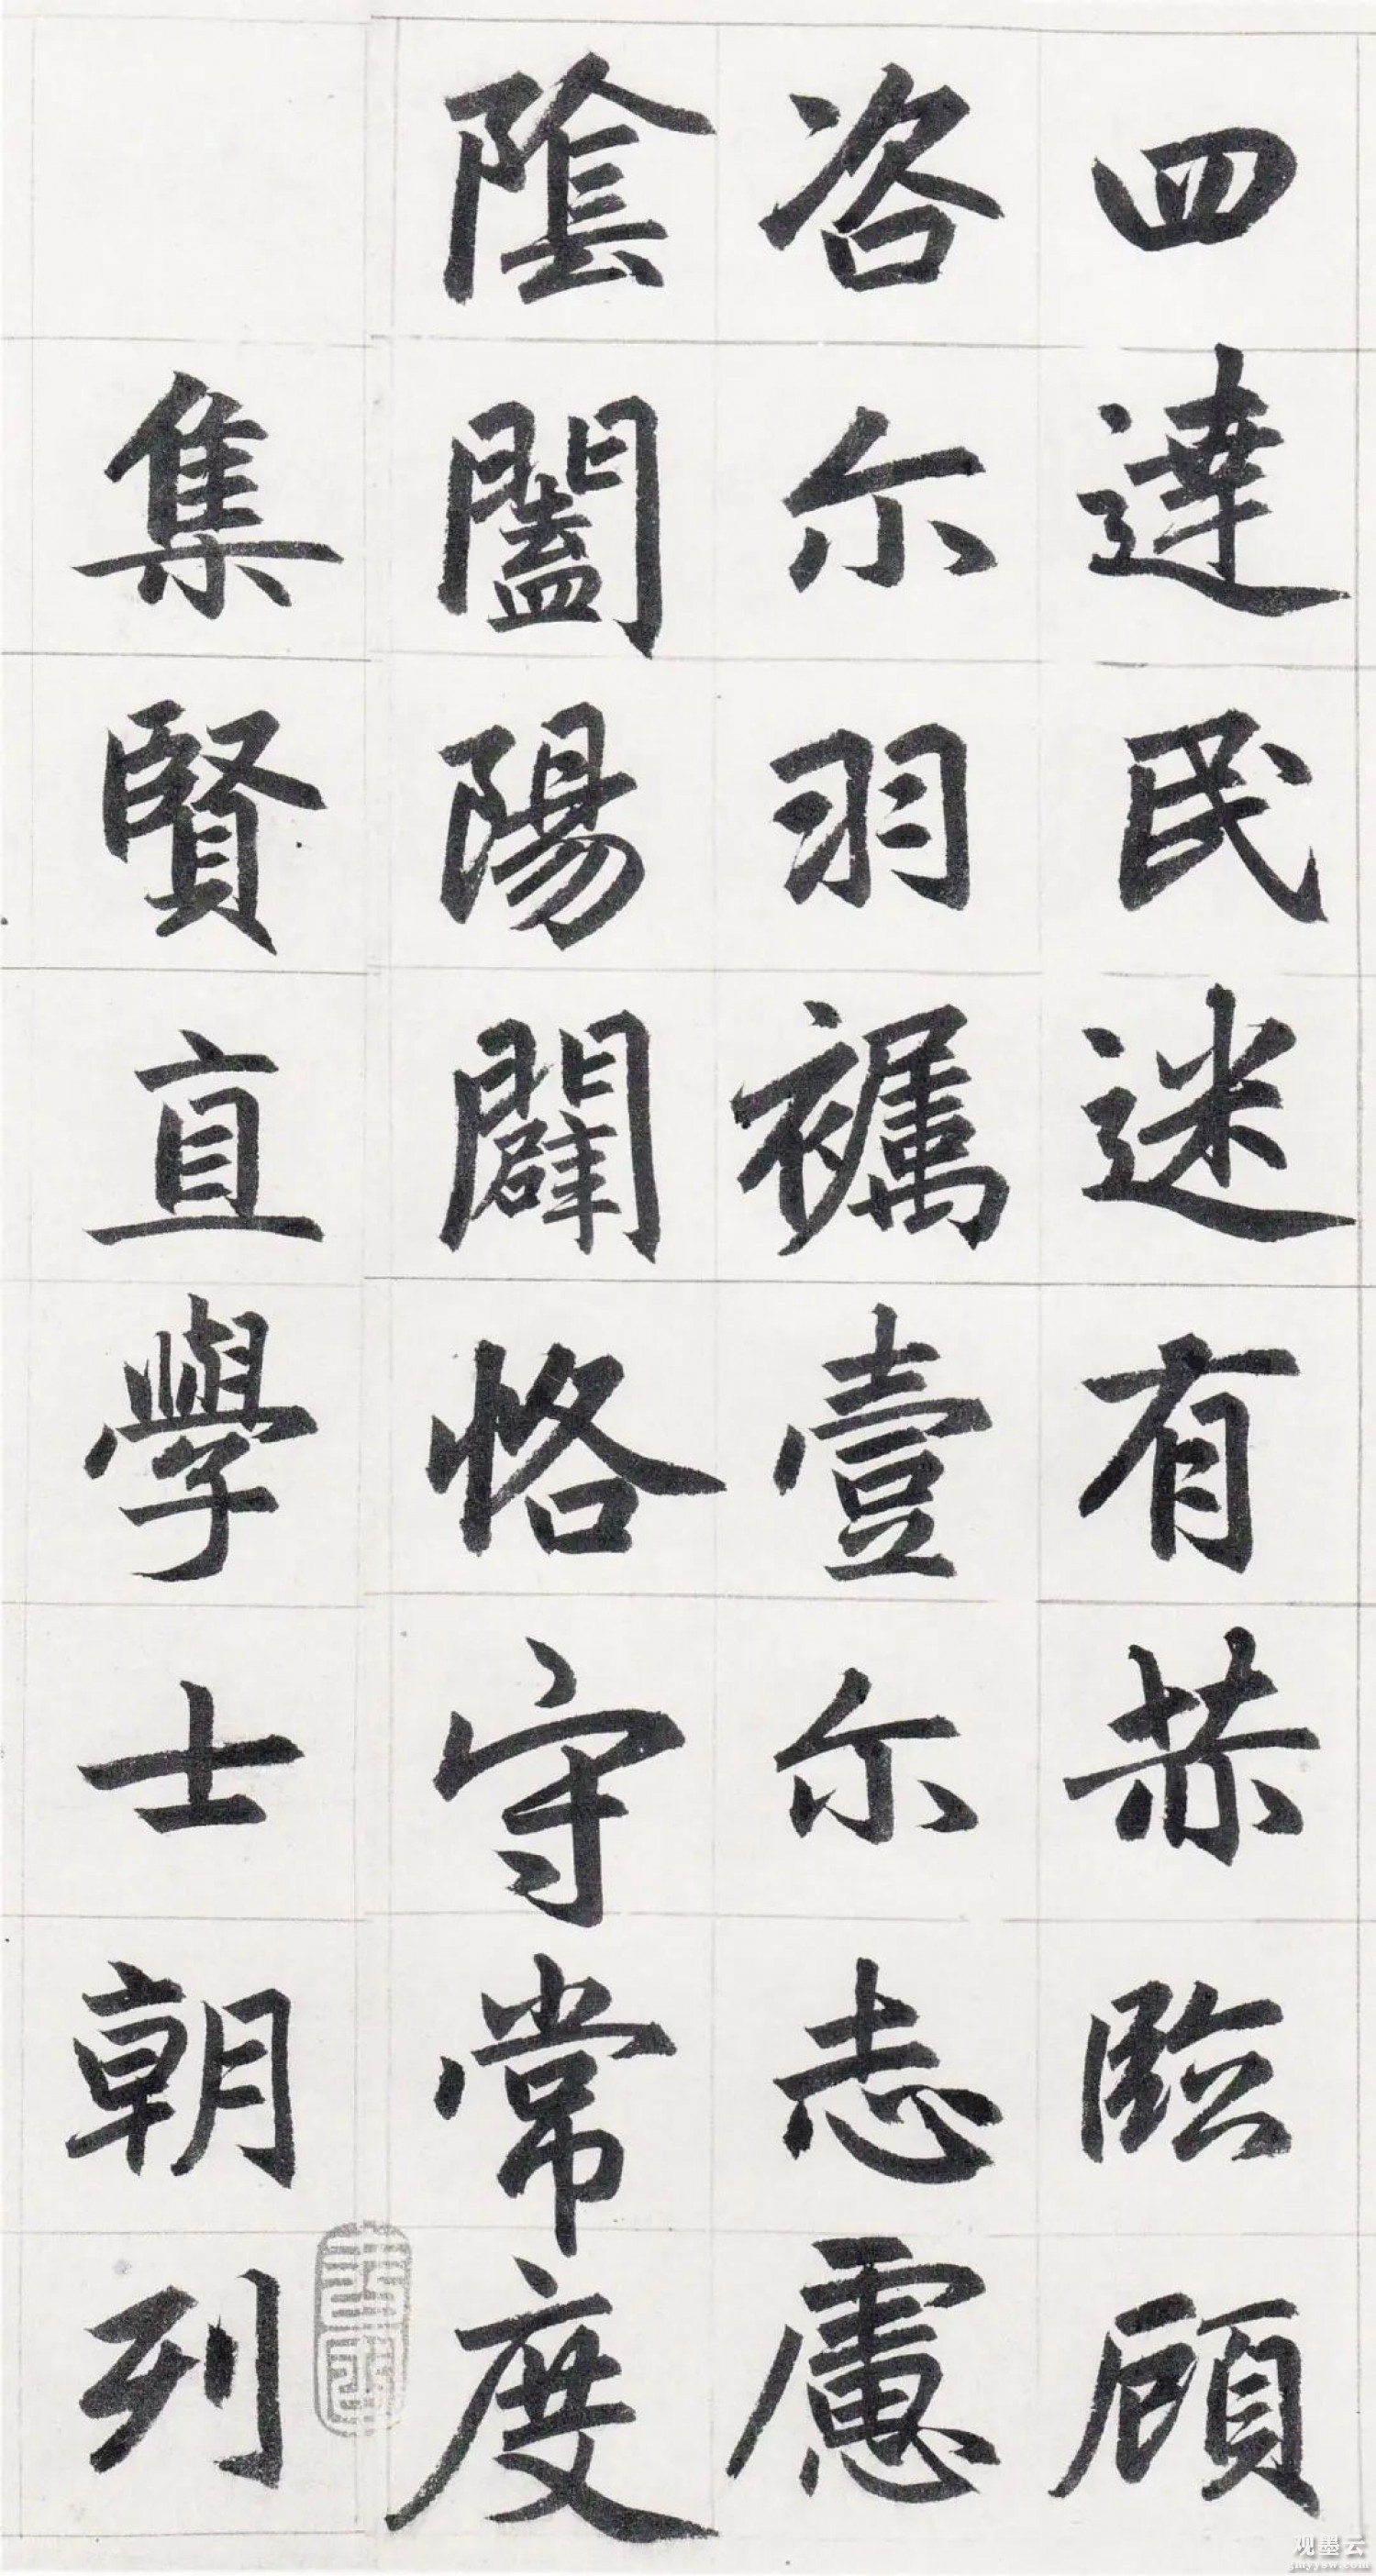 四達民迷有赫臨顧
咨尓羽襹壹尓志慮
陰闔陽闢恪守常度
集賢直學士朝列
观墨云
gmyyow.com